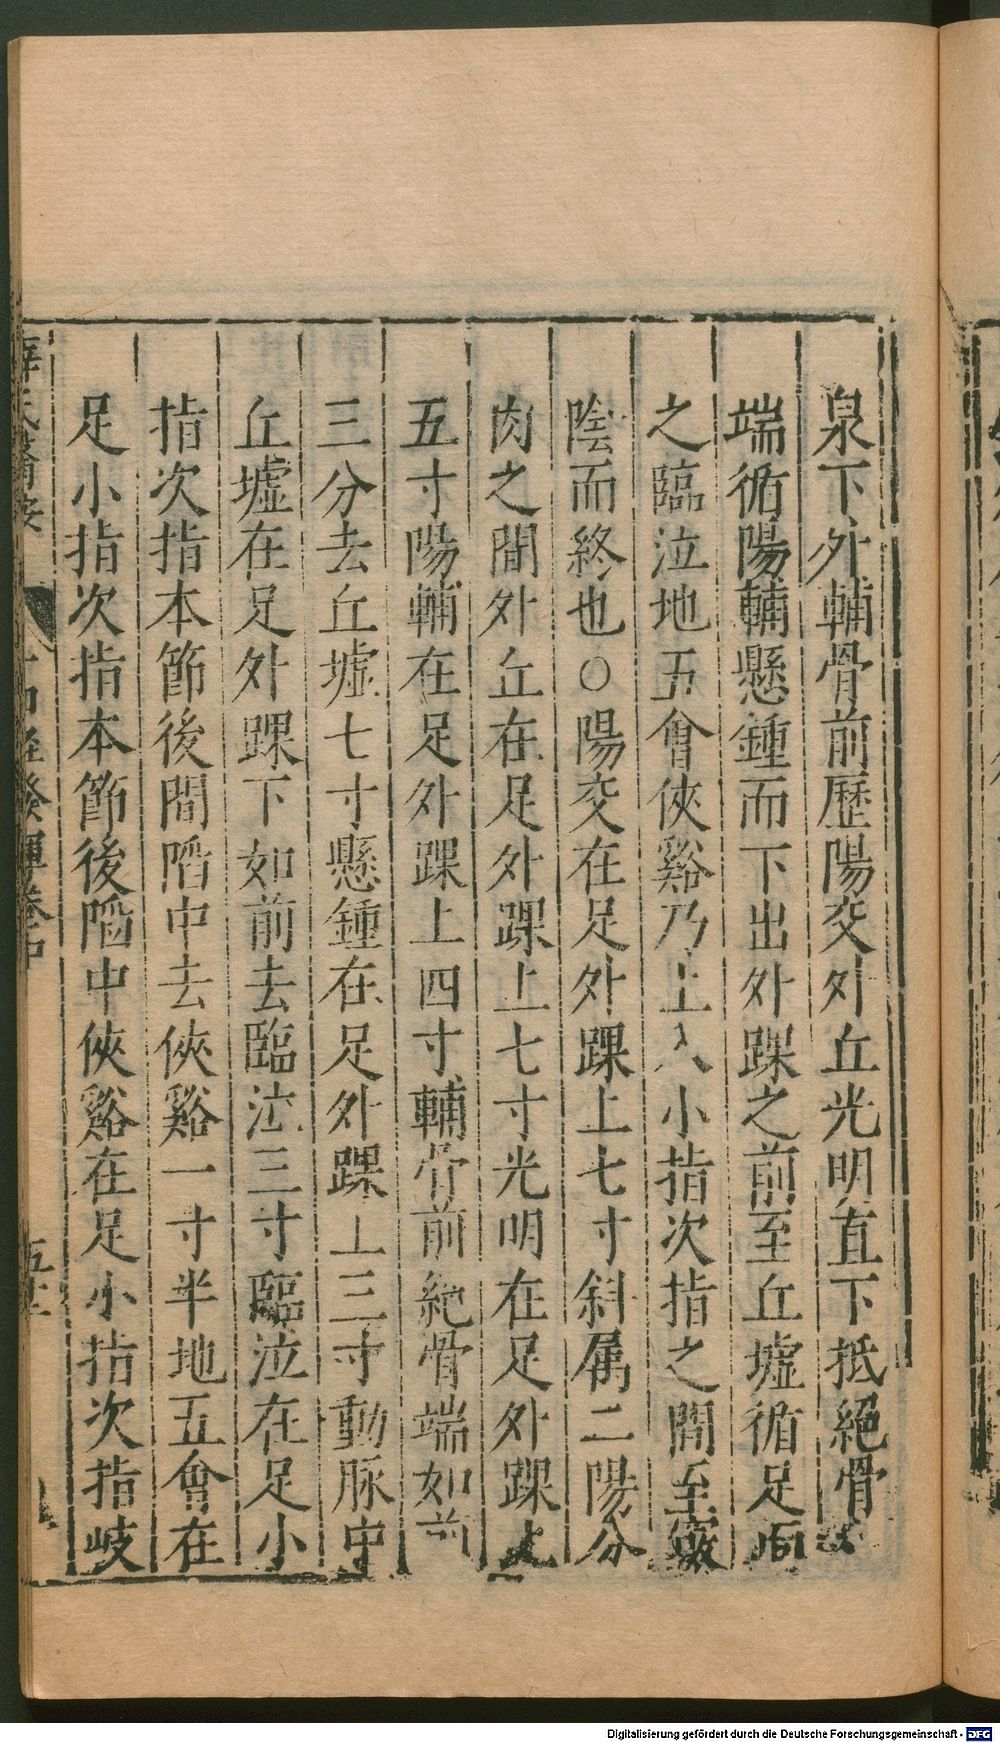 泉下外輔骨前歷陽交外丘光明直下抵絕骨
端循陽輔懸鍾而下出外踝之前至丘墟循足面
之臨泣地五會俠谿乃上入小指次指之間至竅
陰而終也○陽交在足外踝上七寸斜屬二陽分
肉之間外丘在足外踝上七寸光明在足外踝上
五寸陽輔在足外踝上四寸輔骨前絕骨端如前
三分去丘墟七寸懸鍾在足外踝上三寸動脉中
丘墟在足外踝下如前去臨泣三寸臨泣在足小
指次指本節後間陷中去俠谿一寸半地五會在
足小指次指本節後陷中俠谿在足小指次指岐
薛氏醫按 十四經發揮卷中 五十
Digitalisierung gefördert durch die Deutsche Forschungsgemeinschaft - DFG